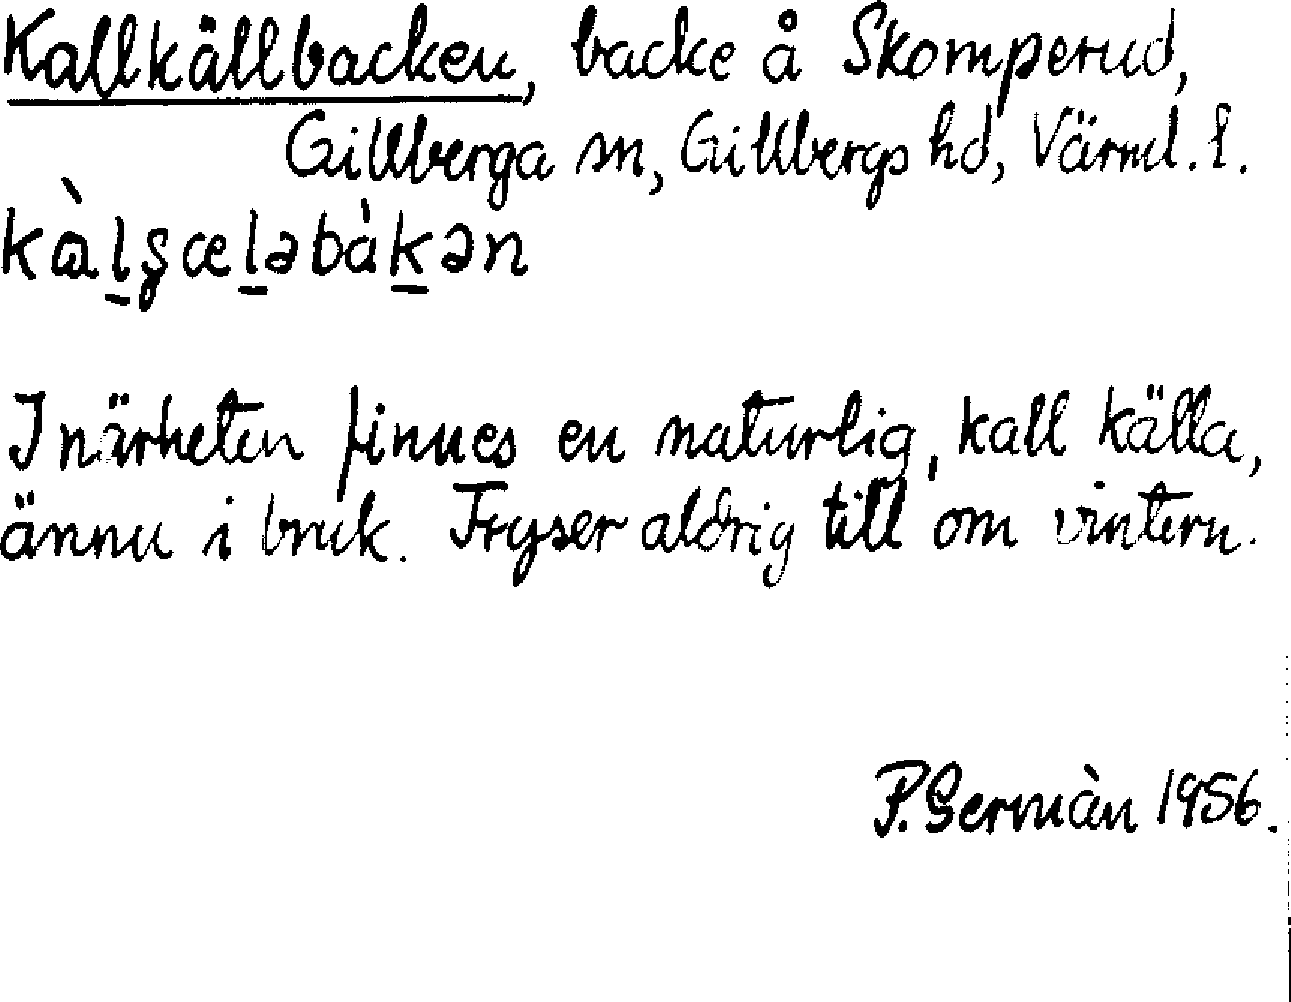 Kallkällbacken, backe å Skomperud,
Gillberga sn, Gillbergs hd, Värml. l.
kàl̠ʂæl̠əbàk̠ən
I närheten finnes en naturlig, kall källa,
ännu i bruk. Fryser aldrig till om vintern.
P. Germàn 1956.